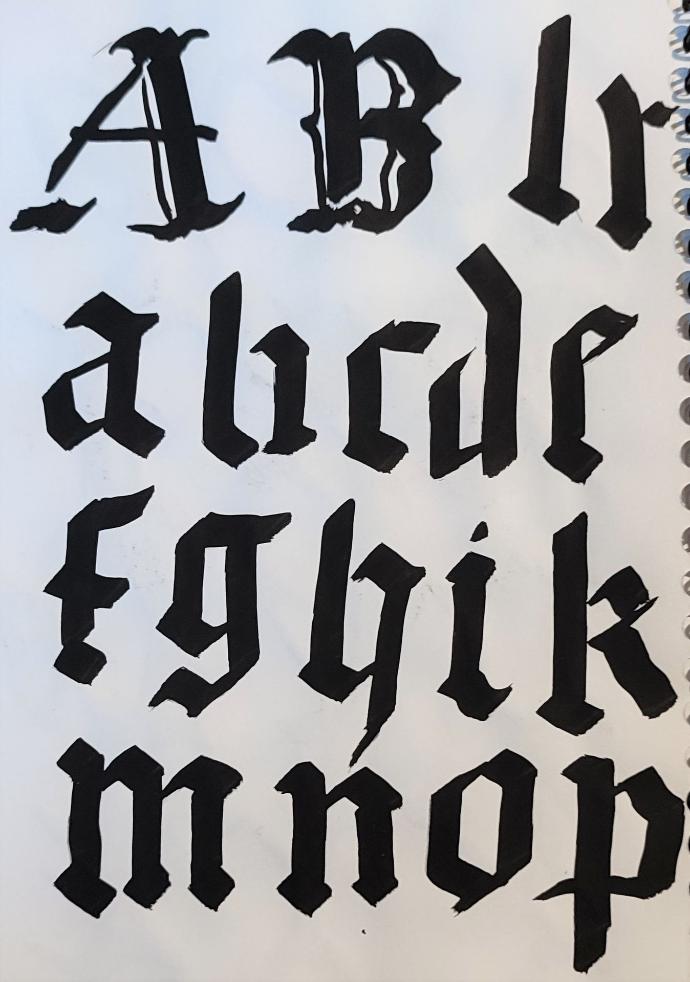 A B l r
a b c d e
f g h i k
m n o p